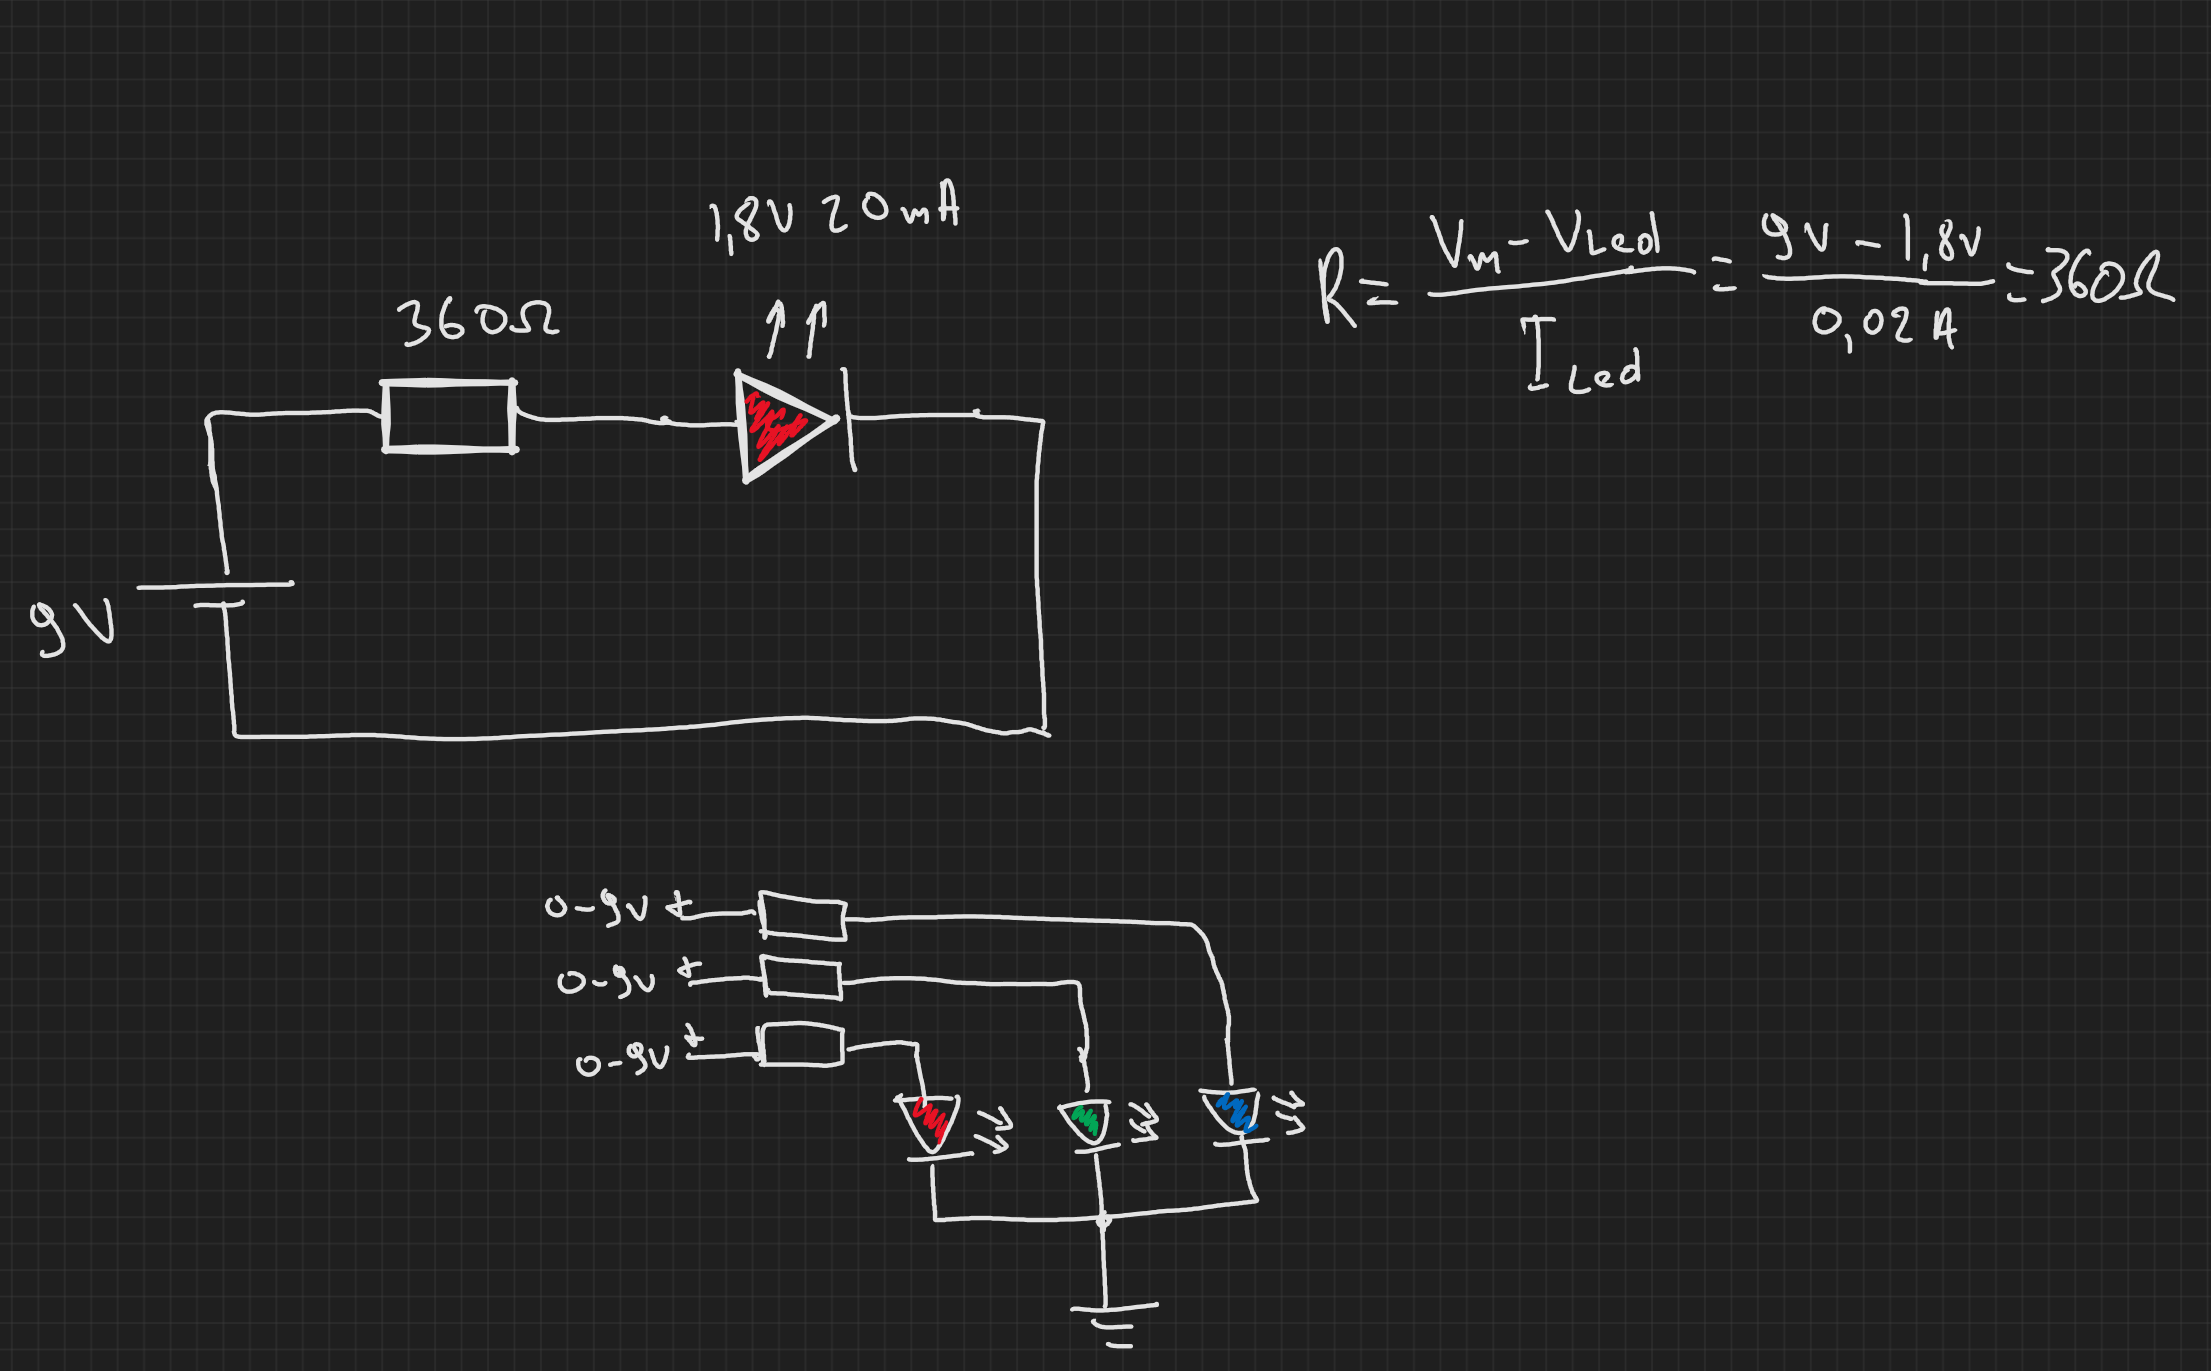 1,8V 20mA
360Ω
9V
R = (Vm - VLed) / ILed = (9V - 1,8V) / 0,02A = 360Ω
0-9V +
0-9V +
0-9V +